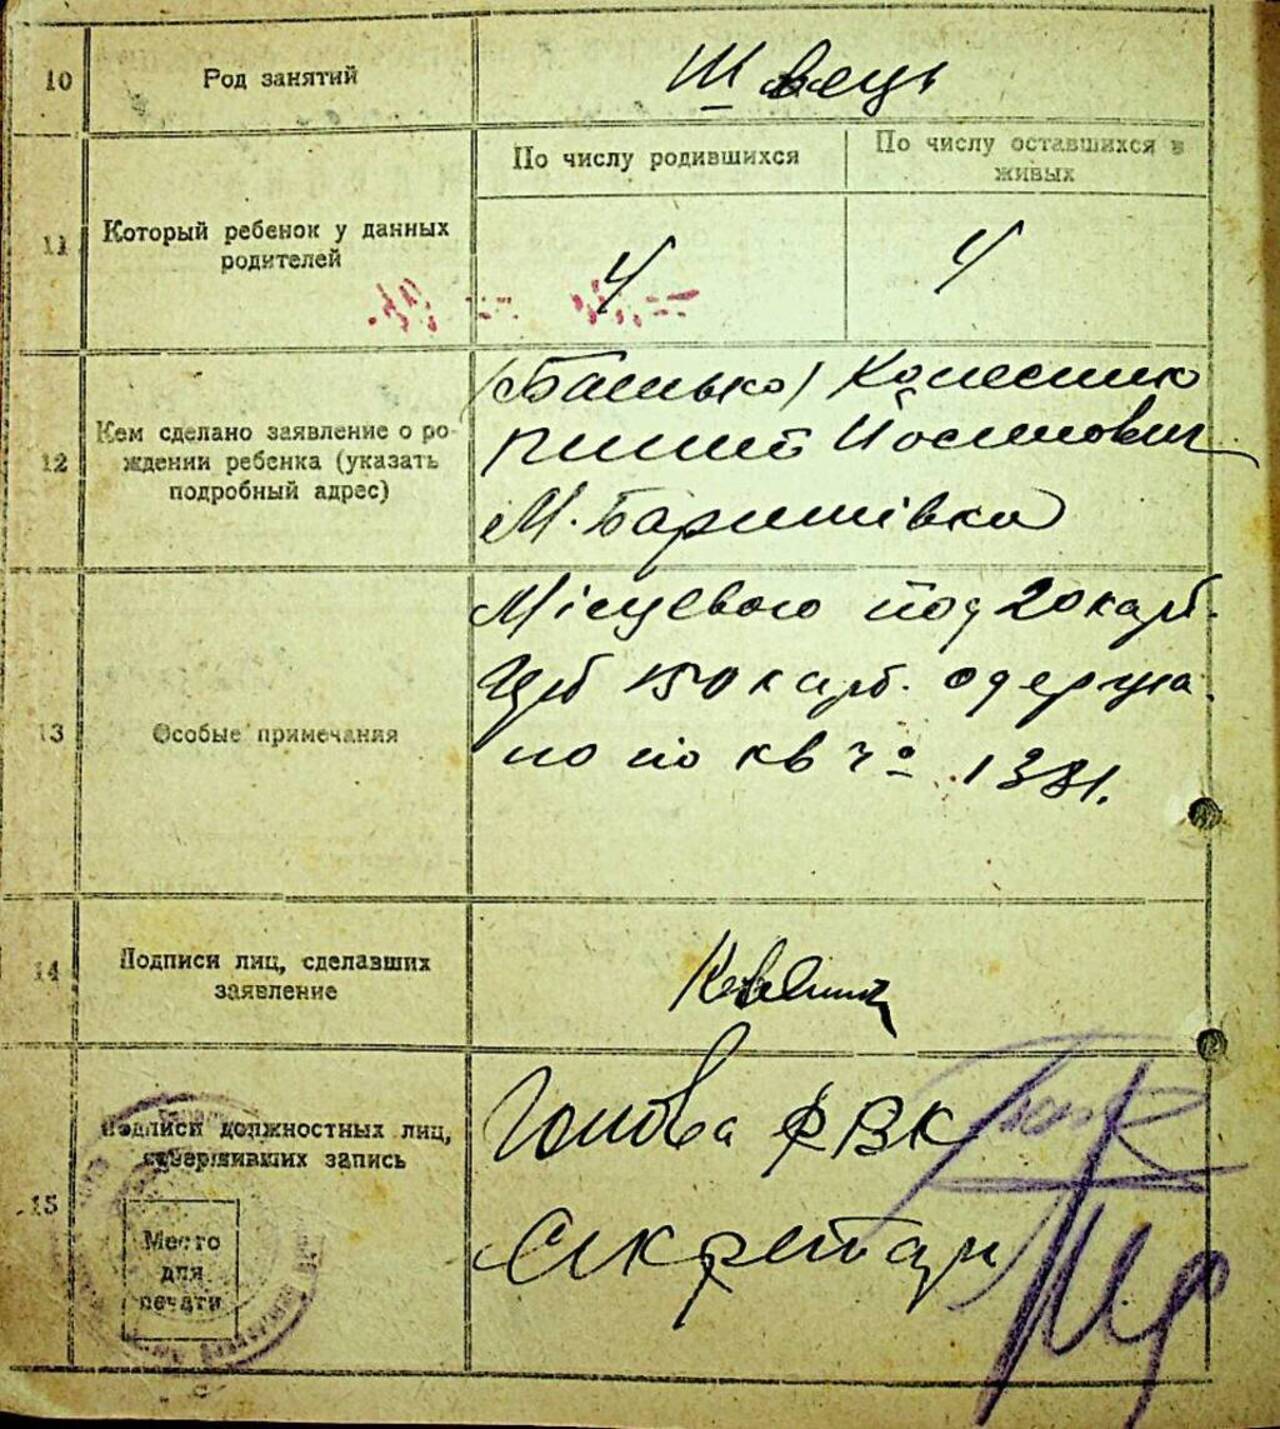 10
Род занятий
Швець
11
Который ребенок у данных
родителей
По числу родившихся
По числу оставшихся в
живых
4
4
12
Кем сделано заявление о ро-
ждении ребенка (указать
подробный адрес)
(Батько) Колесник
Пилип Йосипович
М. Баришівка
13
Особые примечания
Місцевого под 20 карб.
150 карб. одержа
но по кв ч° 1381.
14
Подписи лиц, сделавших
заявление
15
Подписи должностных лиц,
совершивших запись
Место
для
печати
Голова РВК
Секретар